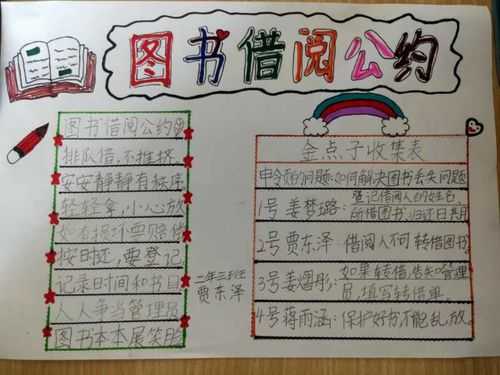 图书借阅公约
图书借阅公约
排队借,不推挤,
安安静静有秩序
轻轻拿,小心放
如有损坏要赔偿
按时还,要登记
记录时间和书目
人人争当管理员
图书本本展笑脸
二年三班
贾东泽
金点子收集表
申令的问题:如何解决图书丢失问题
1号姜梦璐:登记借阅人的姓名,
所借图书,归还日期
2号贾东泽:借阅人不可转借图书
3号姜熠彤:如果转借,告知管理
员,填写转借单。
4号蒋雨涵:保护好书不能乱放。